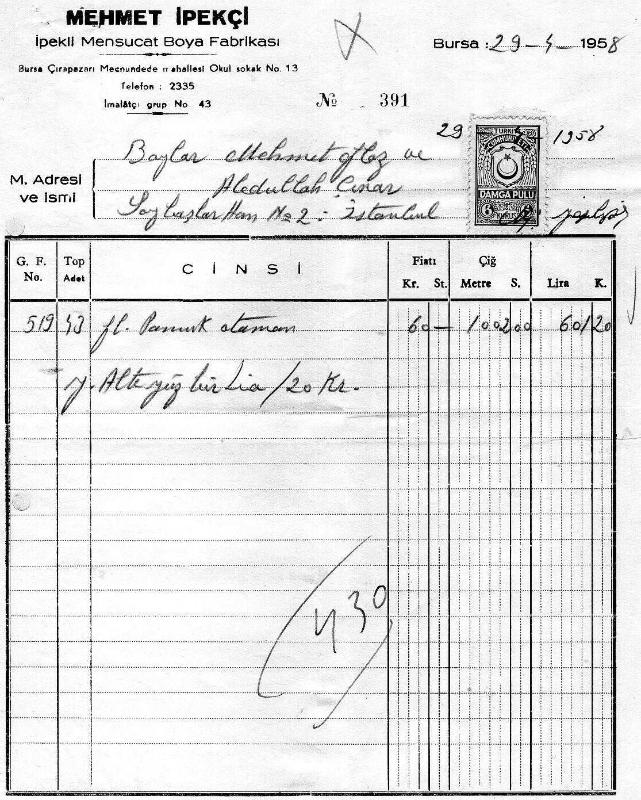 MEHMET İPEKÇİ
İpekli Mensucat Boya Fabrikası
Bursa : 29-4-1958
Bursa Çırapazarı Mecnundede mahallesi Okul sokak No. 13
Telefon : 2335
İmalâtçı grup No. 43
№ 391
29 1958
TÜRKİYE CUMHURİYETİ
DAMGA PULU
KURUŞ
M. Adresi ve ismi
Baylar Mehmet ve
Abdullah Çınar
Han No 2 - İstanbul
G. F. No.
Top Adet
CİNSİ
Fiatı
Kr. St.
Çiğ
Metre S.
Lira K.
519 43 fl. Pamuk ataman 60 — 1002 00 601 20
y. Altıyüz bir Lira /20 Kr.
430